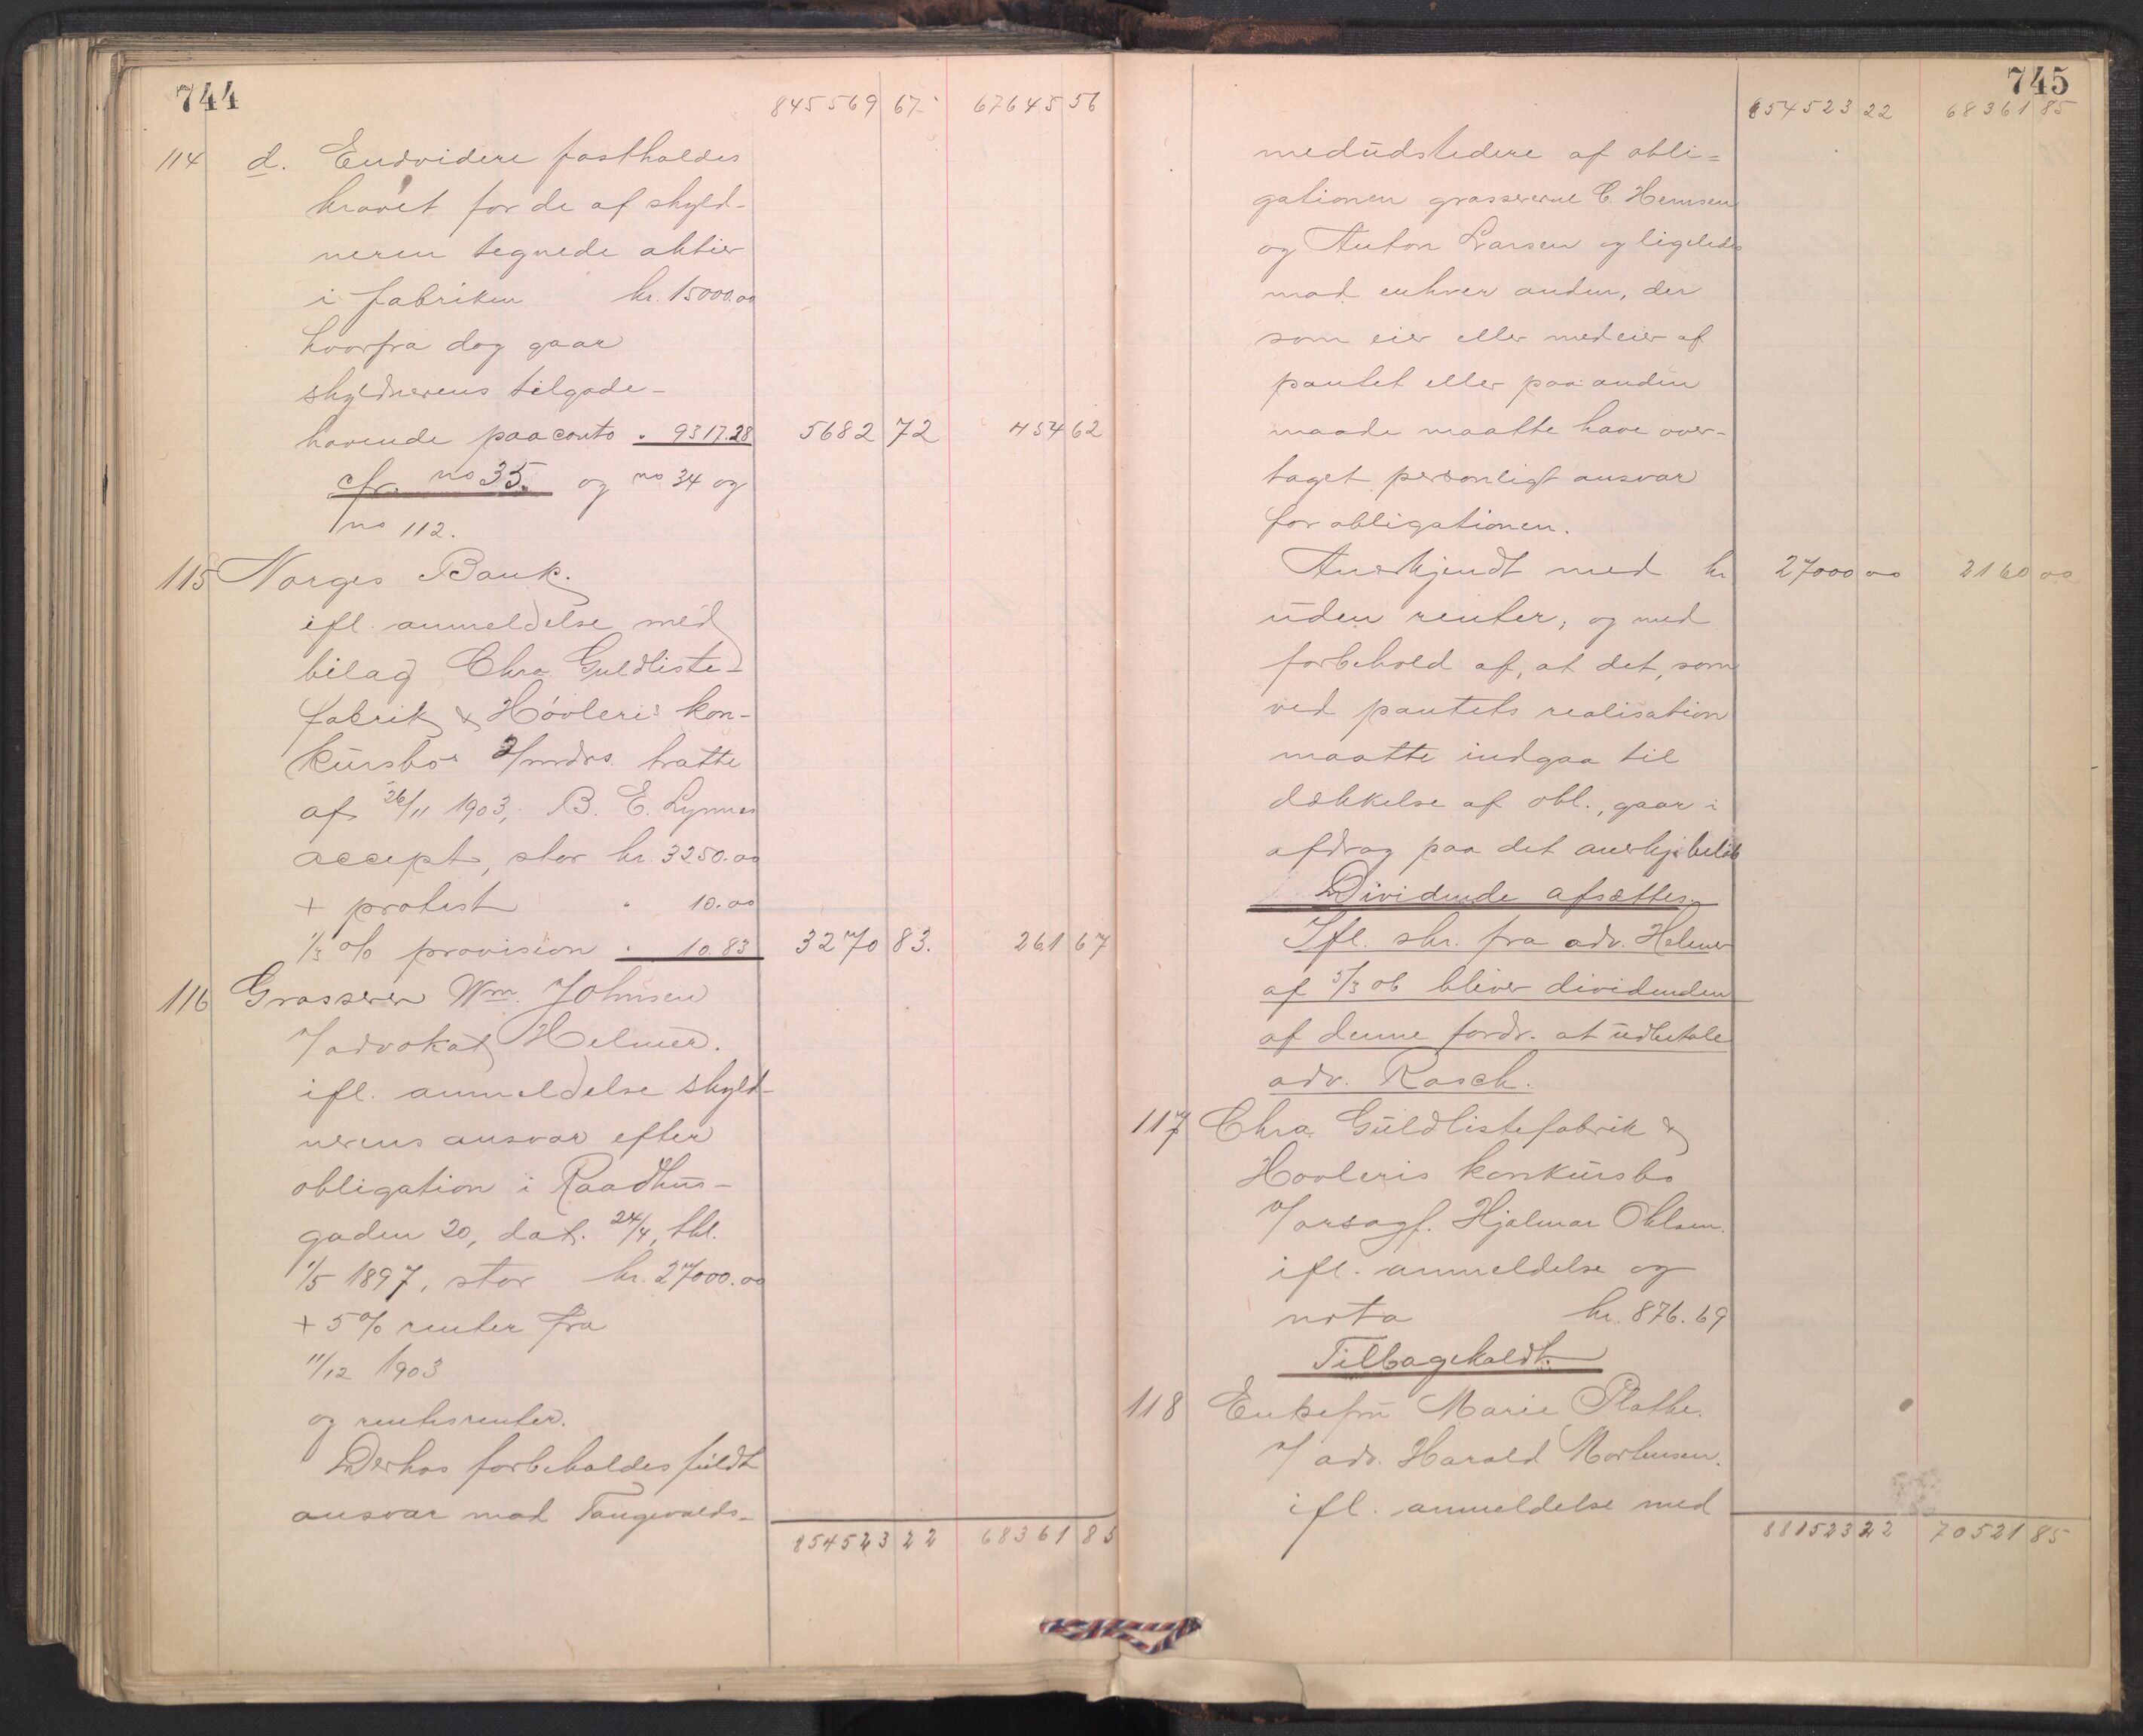 744
845569 67 67645 56
114 d. Endvidere fastholdes
kravet for de af skyld-
neren tegnede aktier
i fabriken kr. 15000.00
hvorfra dog gaar
skyldnerens tilgode-
havende paa conto " 9317.28 5682 72 454 62
cfr. no 35. og no 34 og
no 112.
115 Norges Bank.
ifl. anmeldelse med
bilag Chra Guldliste-
fabrik & Høvleris kon-
kursbos 3/mdrs. tratte
af 26/11 1903, B. E. Lynnes
accept, stor kr. 3250.00
+ protest " 10.00
1/3 % provision " 10.83 3270 83. 261 67
116 Grosserer Wm. Johnsen
v/ advokat Helmer.
ifl. anmeldelse skyld-
nerens ansvar efter
obligation i Raadhus-
gaden 20, dat. 24/4, thl.
1/5 1897, stor kr. 27000.00
+ 5 % renter fra
11/12 1903
og rentesrenter.
Derhos forbeholdes fuldt
ansvar mod Tangevalds-
854523 22 68361 85
745
854523 22 68361 85
medudstedere af obli=
gationen grossererne C. Hermsen
og Anton Larsen og ligeledes
mod enhver anden, der
som eier eller medeier af
pantet eller paa anden
maade maatte have over-
taget personligt ansvar
for obligationen.
Anerkjendt med kr 27000 00 2160 00
uden renter, og med
forbehold af, at det, som
ved pantets realisation
maatte indgaa til
dækkelse af obl., gaar i
afdrag paa det anerkj. beløb
Dividende afsættes.
Ifl. skr. fra adv. Helmer
af 5/3 06 bliver dividenden
af denne fordr. at udbetale
adv. Rasch.
117 Chra Guldlistefabrik &
Høvleris konkursbo
v/ orsagf. Hjalmar Ohlsen.
ifl. anmeldelse og
nota kr. 876.69
Tilbagekaldt.
118 Enkefru Marie Plathe.
v/ adv. Harald Mortensen.
ifl. anmeldelse med
881523 22 70521 85